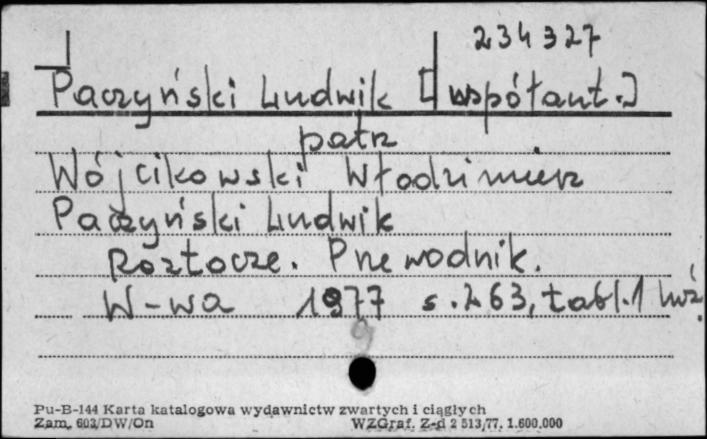 234327
Paczyński Ludwik [współaut.]
patrz
Wójcikowski Włodzimierz
Paczyński Ludwik
Roztocze. Przewodnik.
W-wa 1977 s. 263, tabl. 1 luź.
Pu-B-144 Karta katalogowa wydawnictw zwartych i ciągłych
Zam. 603/DW/On WZGraf. Z-d 2 513/77. 1.600.000